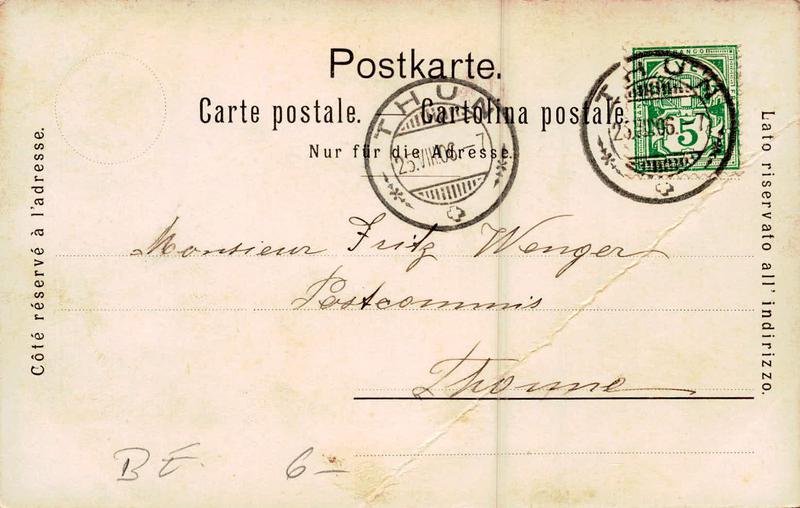 Postkarte.
Carte postale. — Cartolina postale.
Nur für die Adresse.
Côté réservé à l'adresse.
Lato riservato all' indirizzo.
THUN
25.VII.06.–7
THUN
25.VII.06.–7
FRANCO
5
Monsieur Fritz Wenger
Postcommis
Thoune
BE. 6–